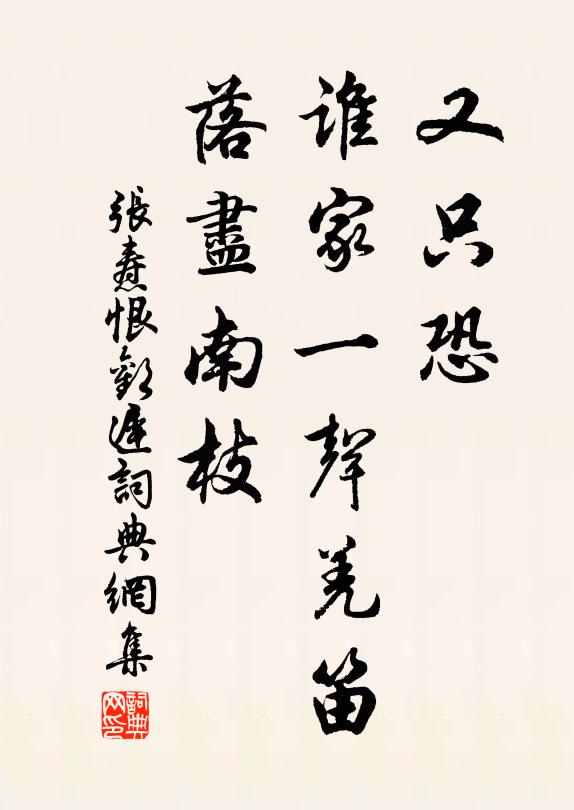 又只恐
誰家一聲羌笛
落盡南枝
張燾恨歡遲詞典網集
詞典
网印